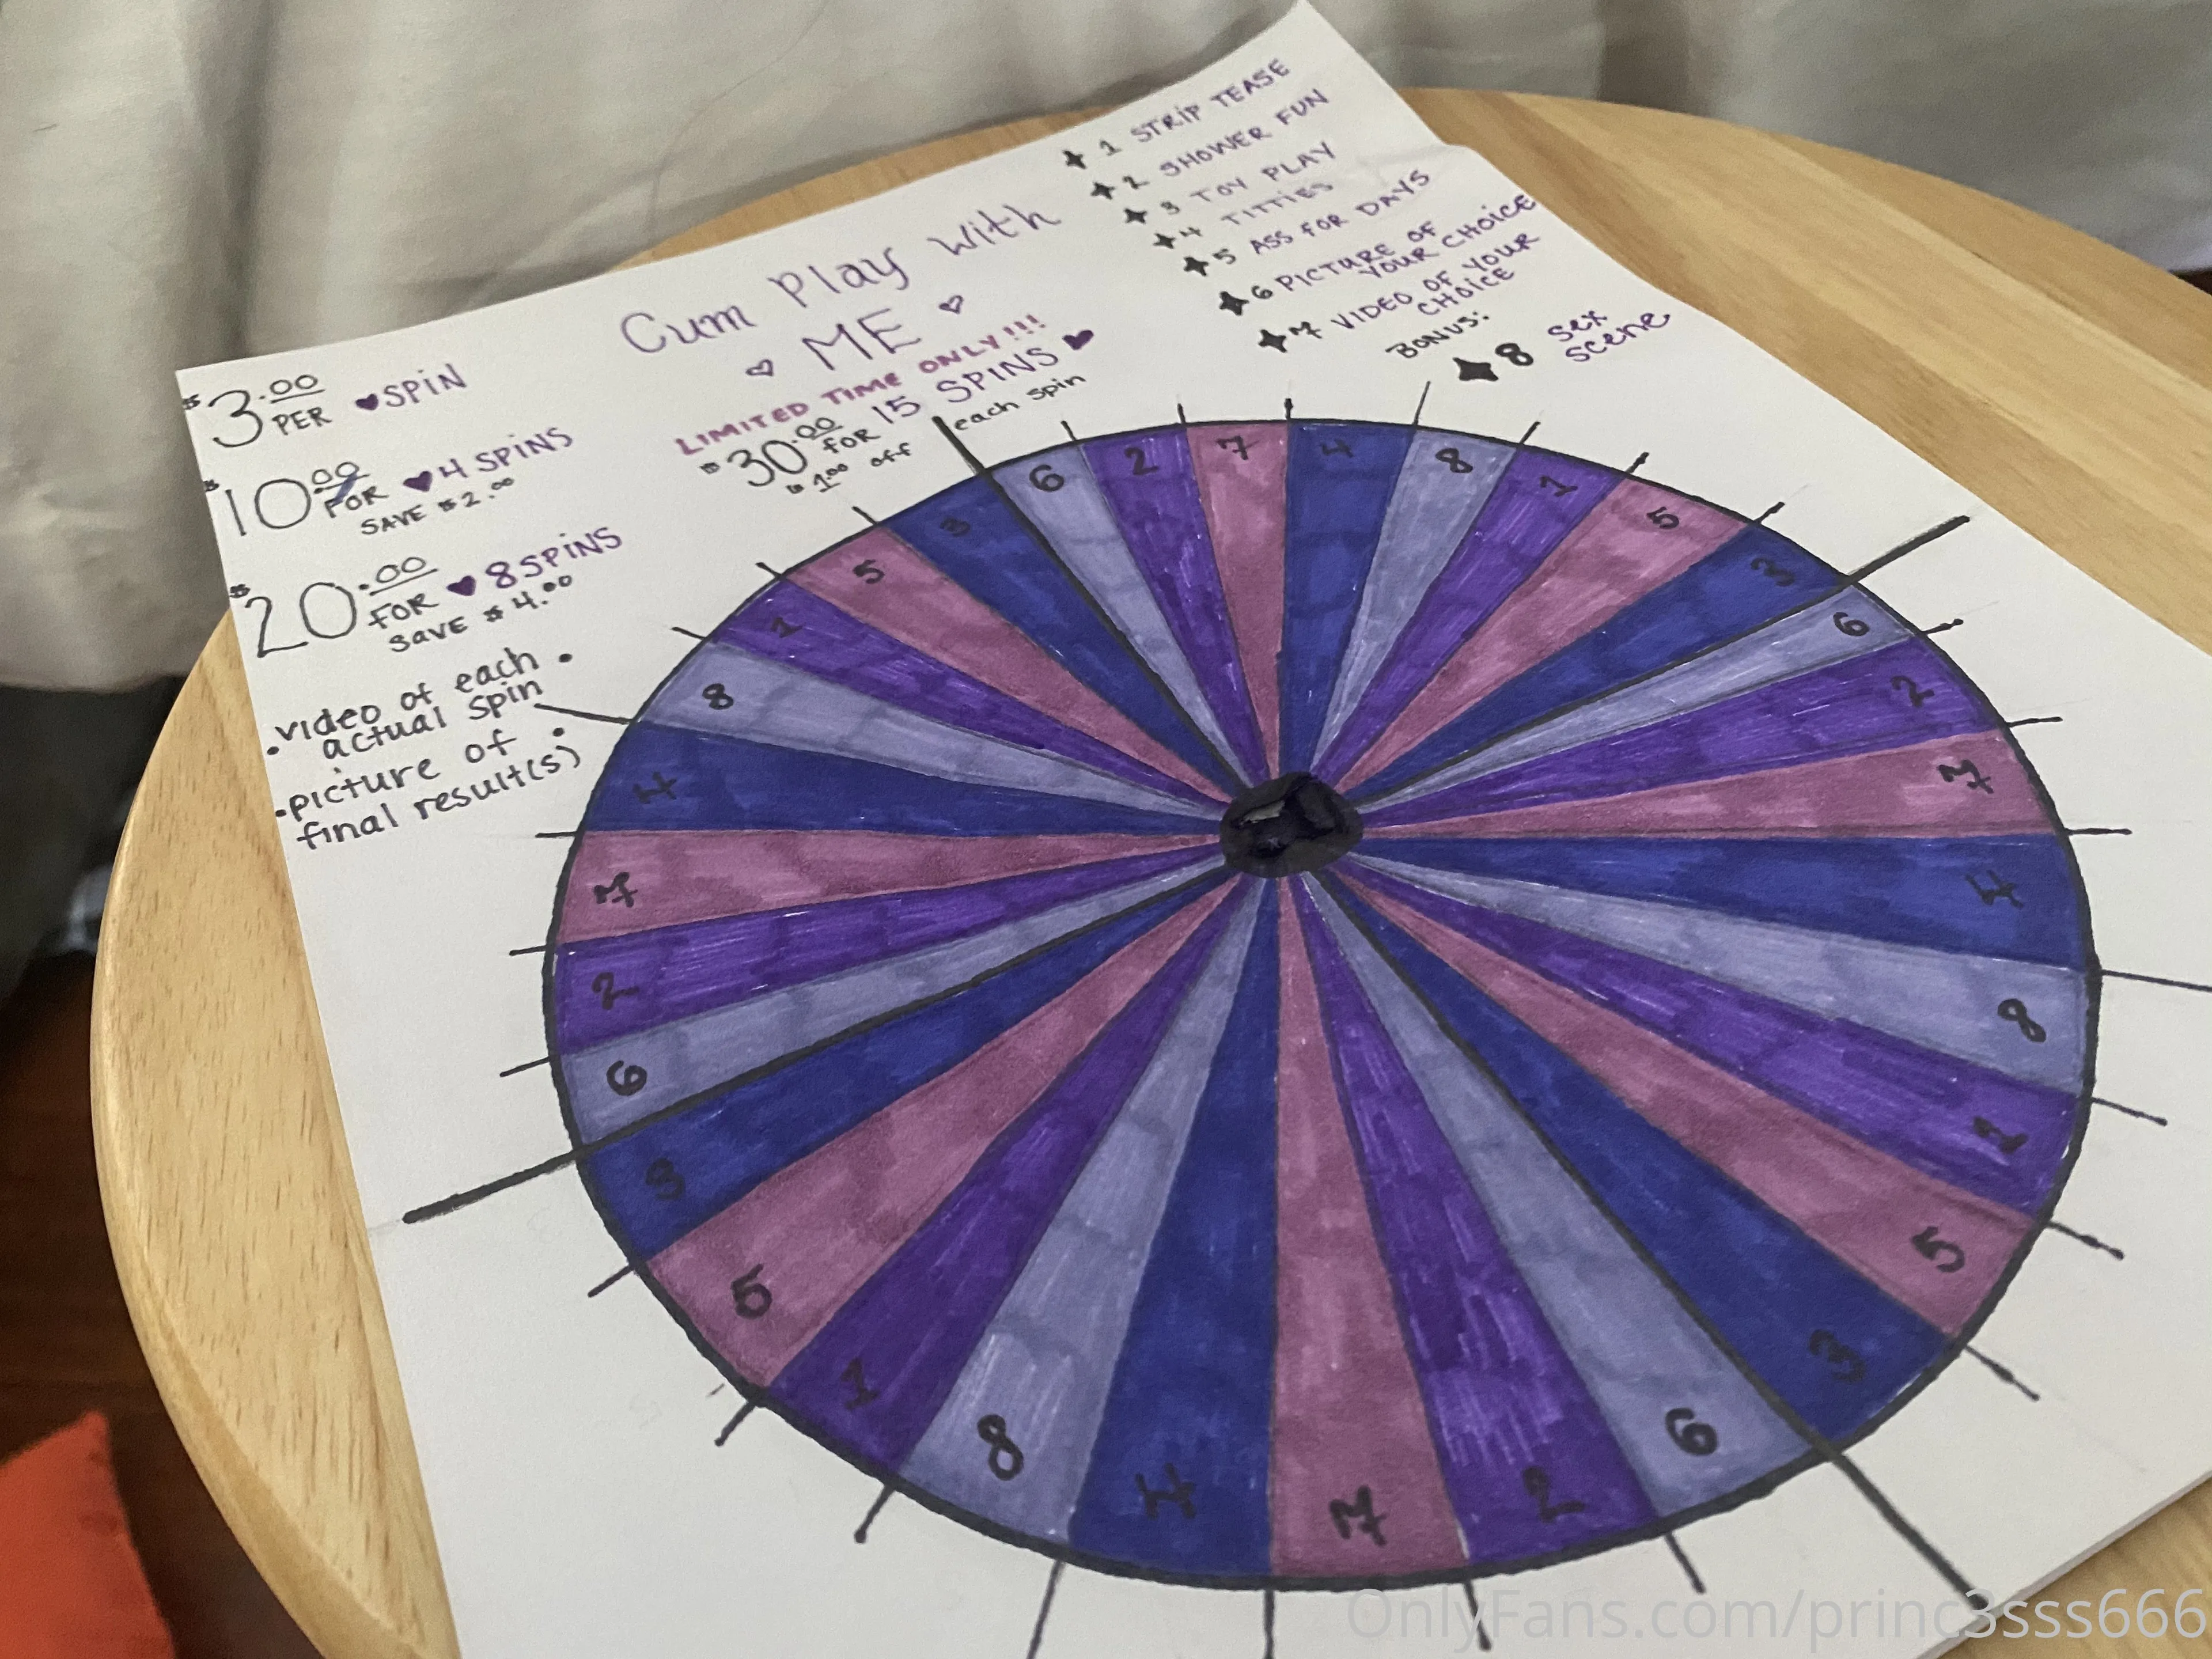 $3.00 PER ♥SPIN
$10.00 FOR ♥4 SPINS
SAVE $2.00
$20.00 FOR ♥8 SPINS
SAVE $4.00
• video of each •
actual spin
• picture of •
final result(s)
Cum Play With
♡ ME ♡
LIMITED TIME ONLY!!!
$30.00 FOR 15 SPINS ♥
$1.00 off each spin
✦ 1 STRIP TEASE
✦ 2 SHOWER FUN
✦ 3 TOY PLAY
✦ 4 TITTIES
✦ 5 ASS FOR DAYS
✦ 6 PICTURE OF
YOUR CHOICE
✦ 7 VIDEO OF YOUR
CHOICE
BONUS:
✦ 8 SEX
SCENE
6
2
7
4
8
1
5
3
6
2
7
4
8
1
5
3
6
2
7
4
8
1
5
3
6
2
7
4
8
1
5
3
OnlyFans.com/princ3sss666